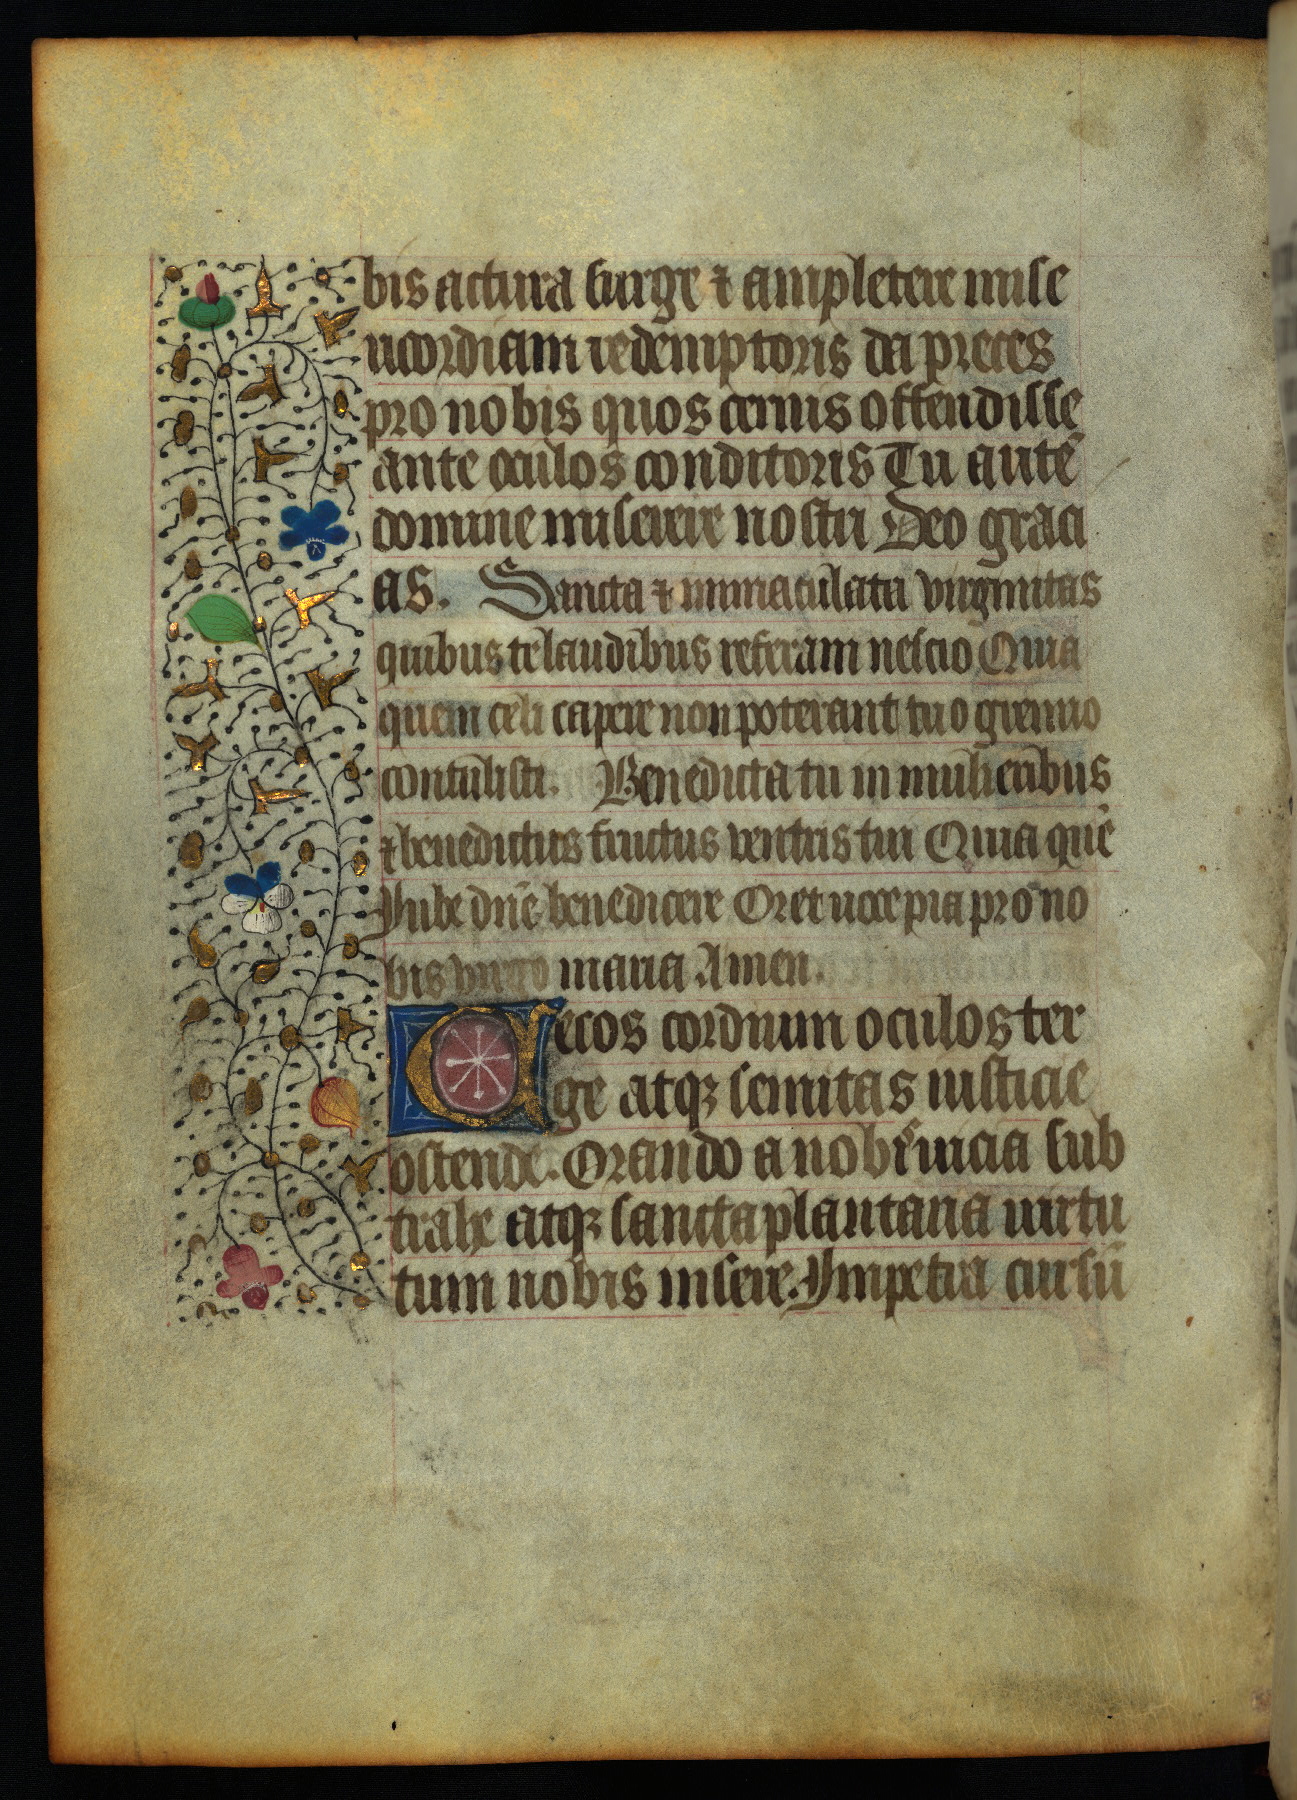 bis actura surge ⁊ ampletere mise
ricordiam redemptoris da preces
pro nobis quos cernis offendisse
ante oculos conditoris Tu autē
domine miserere nostri Deo graci
as. Sancta ⁊ immaculata virginitas
quibus te laudibus referam nescio Quia
quem celi capere non poterant tuo gremio
contulisti. Benedicta tu in mulieribus
⁊ benedictus fructus ventris tui Quia quē
Jube dn̄e benedicere Oret uoce pia pro no
bis virgo maria Amen.
Cecos cordium oculos ter
ge atqꝫ semitas iusticie
ostende. Orando a nobis uicia sub
trahe atqꝫ sancta plantaria uirtu
tum nobis insere. Impetra cursū